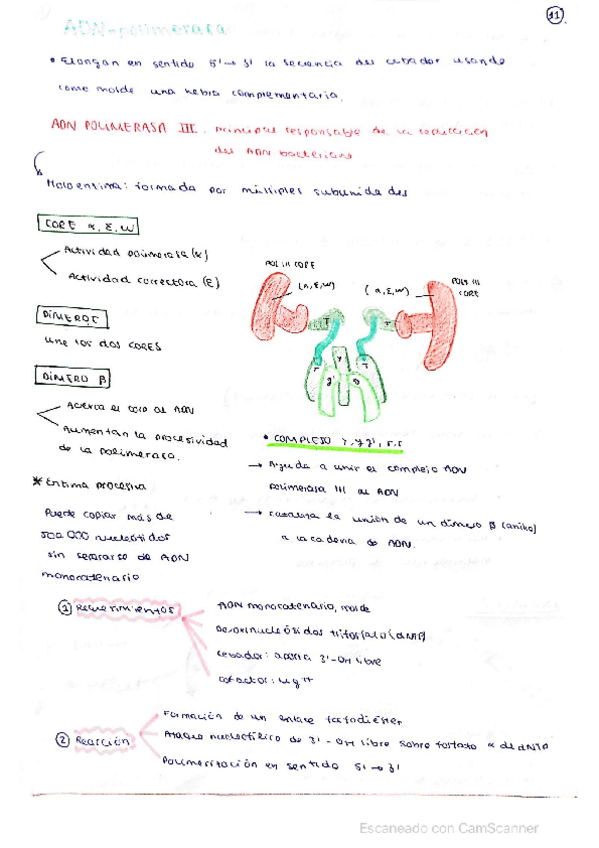 11
ADN-polimerasa
• Elongan en sentido 5'→3' la secuencia del cebador usando
como molde una hebra complementaria.
ADN POLIMERASA III. principal responsable de la replicación
del ADN bacteriano
Holoenzima: formada por múltiples subunidades
CORE α, Ɛ, ω
Actividad polimerasa (α)
Actividad correctora (Ɛ)
DÍMERO τ
une los dos CORES
DÍMERO β
Acerca el core al ADN
Aumentan la procesividad
de la polimerasa.
* Enzima procesiva
Puede copiar más de
500 000 nucleótidos
sin separarse de ADN
monocatenario
POL III CORE
(α, Ɛ, ω)
(α, Ɛ, ω)
POL III
CORE
τ
τ
γ
τ
τ
δ'
δ
• COMPLEJO
→ Ayuda a unir el complejo ADN
polimerasa III al ADN
→ cataliza la unión de un dímero β (anillo)
a la cadena de ADN.
1 Requerimientos
ADN monocatenario, molde
Desoxinucleótidos trifosfato (dNTP)
cebador: aporta 3'-OH libre
cofactor: Mg++
2 Reacción
Formación de un enlace fosfodiéster
Ataque nucleofílico de 3'-OH libre sobre fosfato α del dNTP
Polimerización en sentido 5'→3'
Escaneado con CamScanner